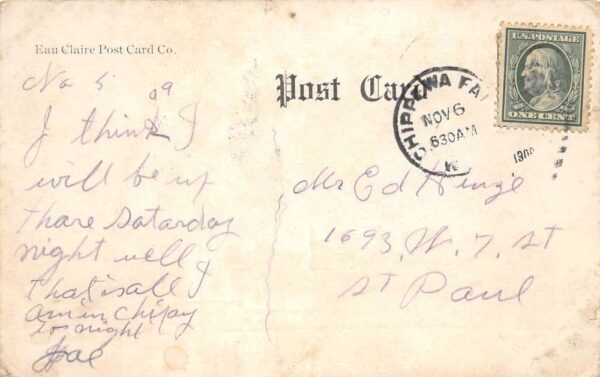 Eau Claire Post Card Co.
Post Card
No 5 09
I think I
will be up
thare Saturday
night well
that is all I
am in Chipay
to night
CHIPPEWA FA
NOV 6
630 AM
W
190
U.S. POSTAGE
ONE CENT
Mr Ed
1693, W. 7, St
St Paul